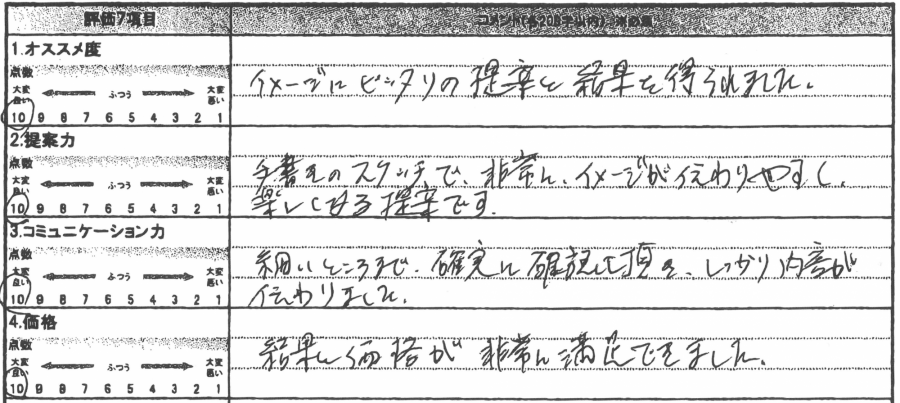 評価7項目 コメント(各200字以内) ※必須
1.オススメ度
点数
大変良い ふつう 大変悪い
10 9 8 7 6 5 4 3 2 1
イメージにピッタリの提案と結果を得られました。
2.提案力
点数
大変良い ふつう 大変悪い
10 9 8 7 6 5 4 3 2 1
手書きのスケッチで、非常に、イメージが伝わりやすく、
楽しくなる提案です。
3.コミュニケーション力
点数
大変良い ふつう 大変悪い
10 9 8 7 6 5 4 3 2 1
細いところまで、確実に確認して頂き、しっかり内容が
伝わりました。
4.価格
点数
大変良い ふつう 大変悪い
10 9 8 7 6 5 4 3 2 1
結果と価格が非常に満足できました。